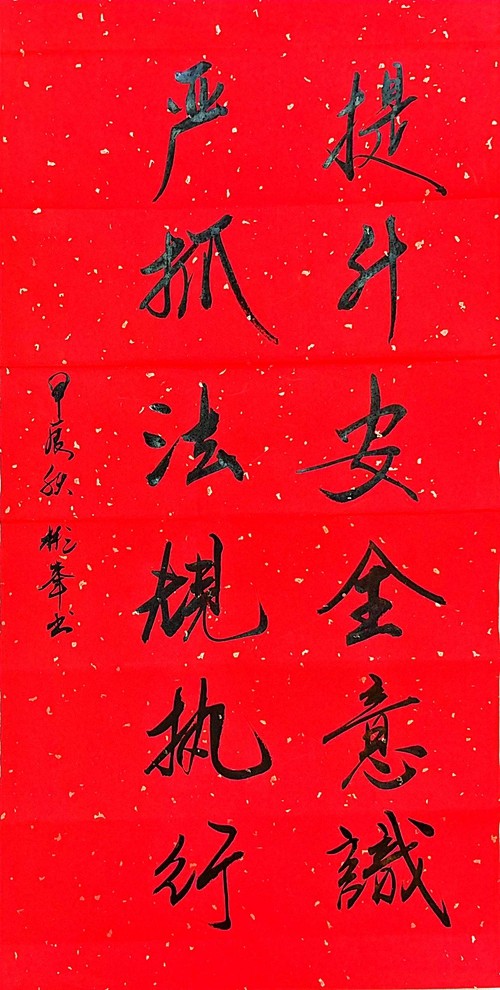 提升安全意識
严抓法规执行
甲辰秋 彬峯书